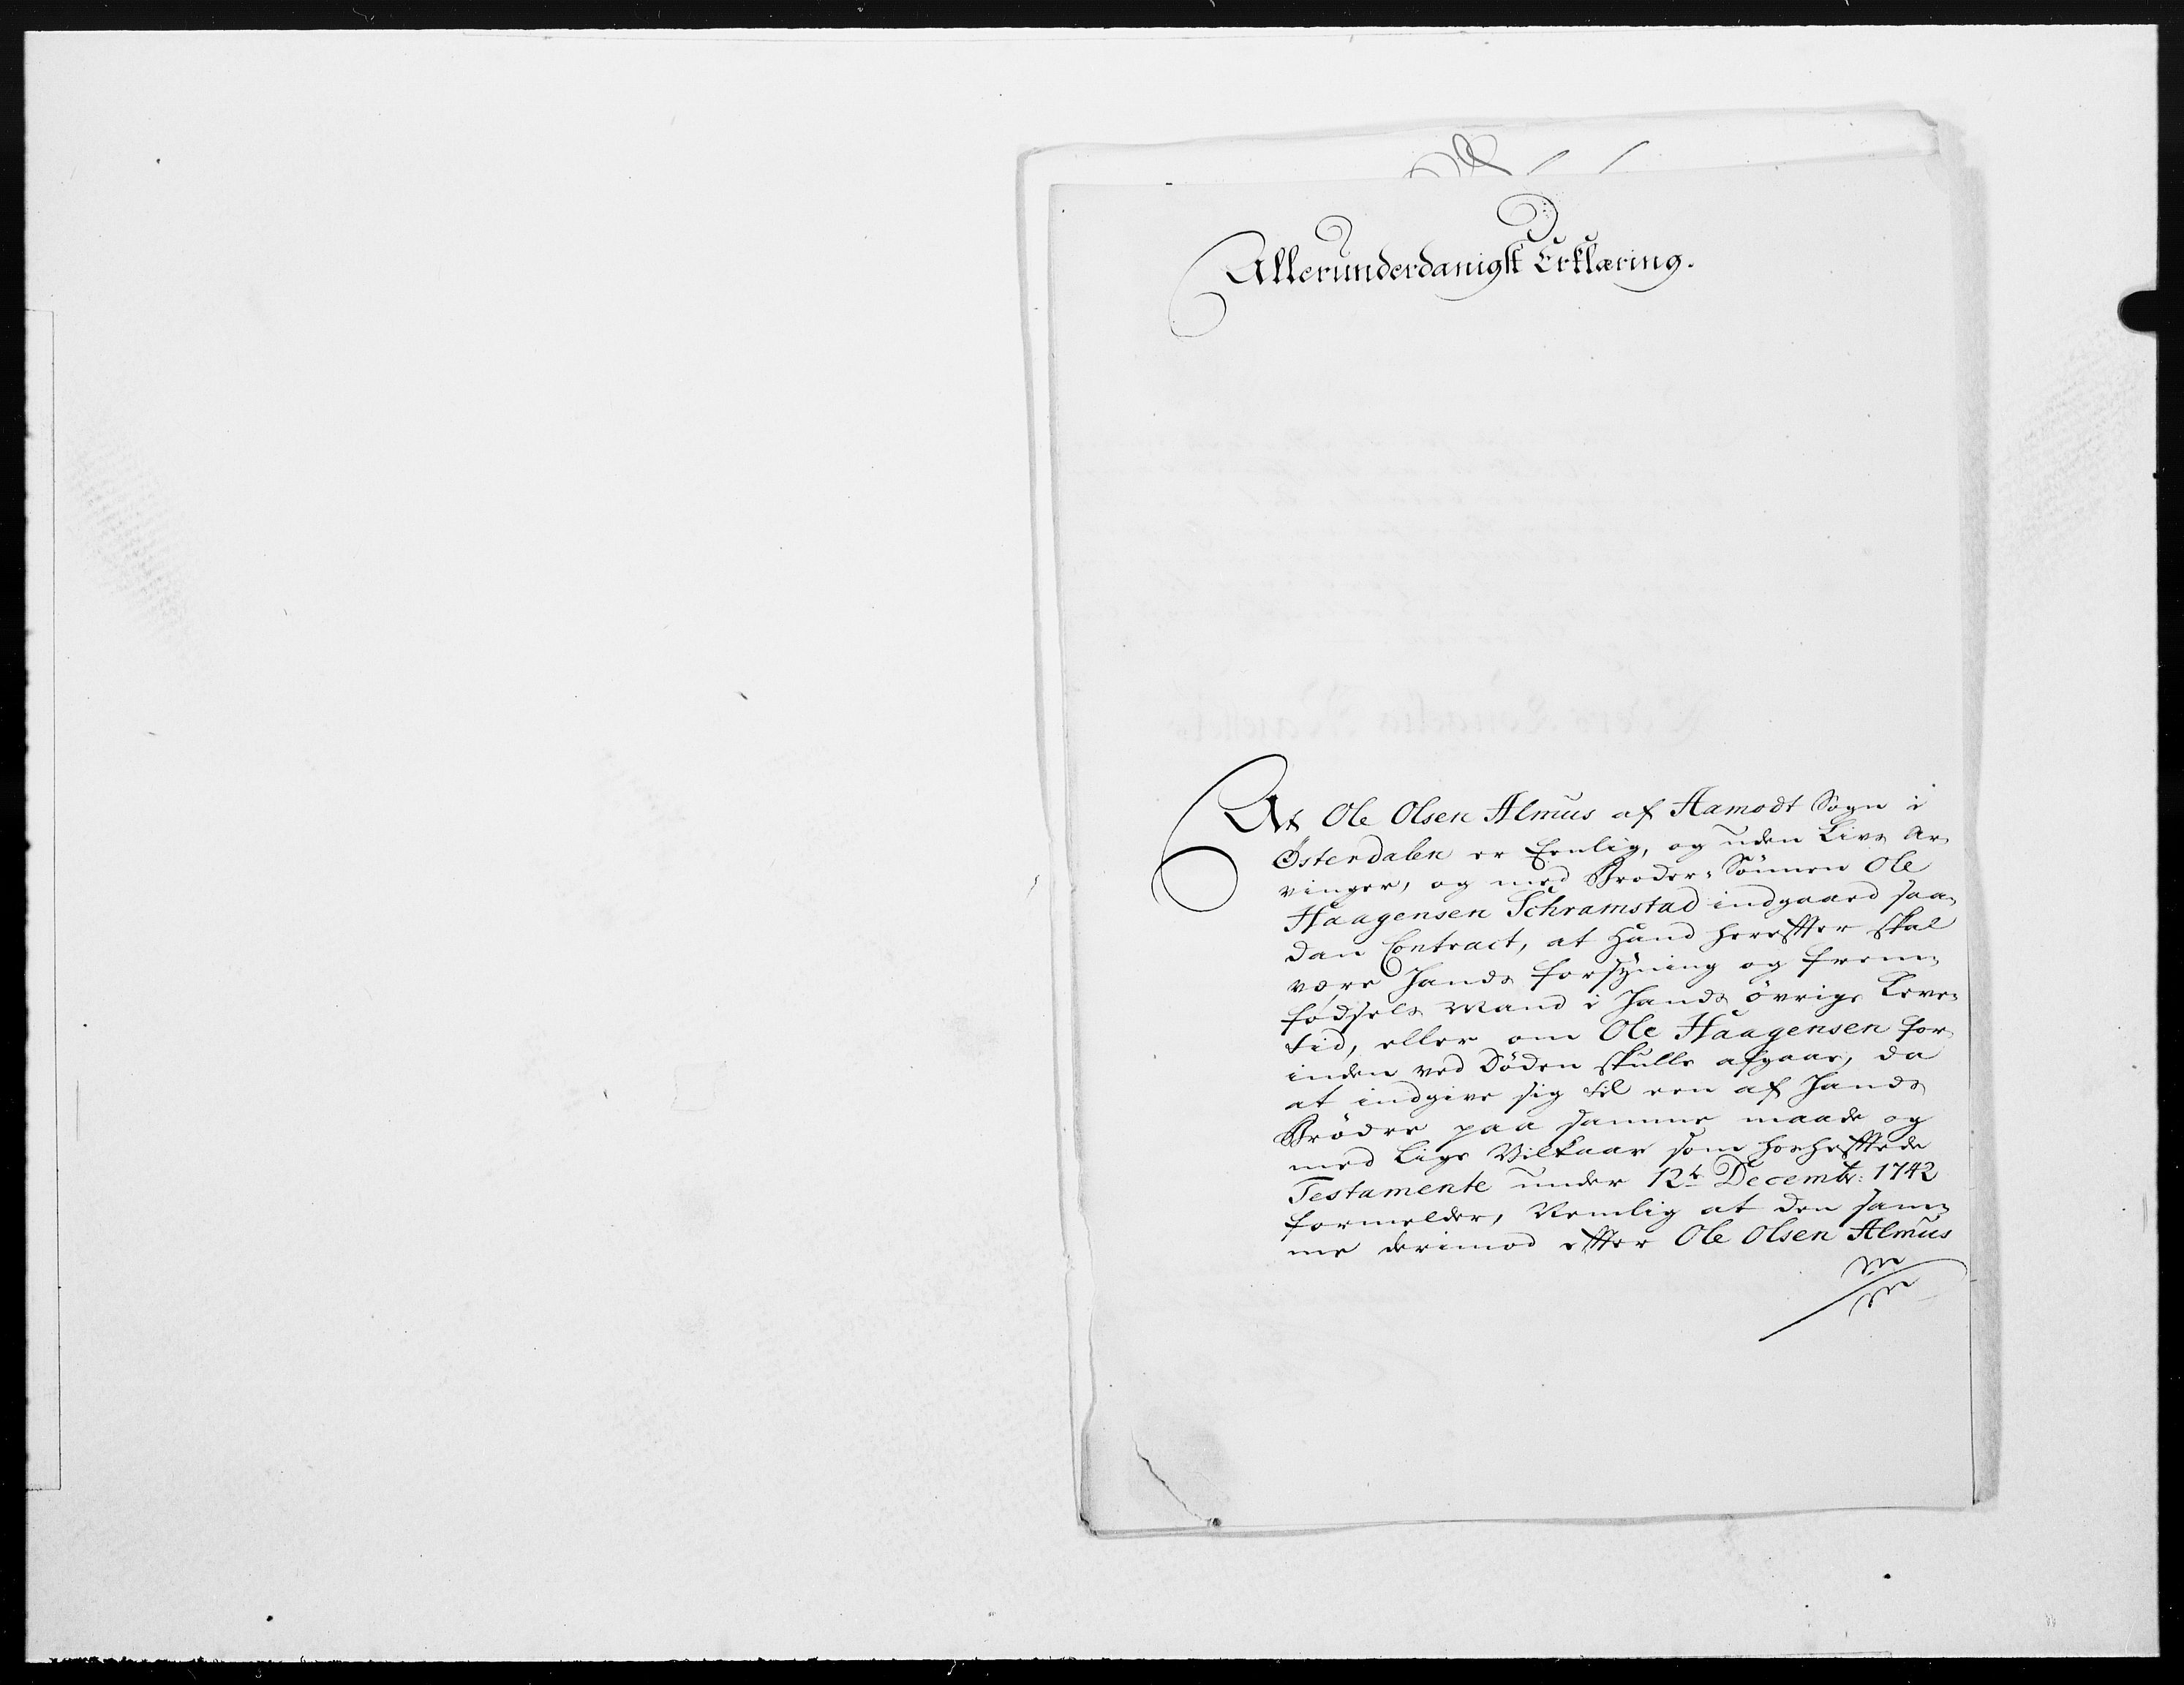 Allerunderdanigst Erklæring.
At Ole Olsen Almus af Aamodt Sogn i
Østerdalen er Eenlig, og uden Livs Ar-
vinger, og med Broder-Sønnen Ole
Haagensen Schramstad indgaaed saa-
dan Contract, at Hand herefter skal
være hands forsyning og frem-
fødsels Mand i hands øvrige Leve-
tid, eller om Ole Haagensen for
inden ved Døden skulle afgaae, da
at indgive sig til een af hands
Brødre paa samme maade og
med lige Vilkaar som hoshæftede
Testamente under 12t Decembr: 1742
formelder, Nemlig at den sam-
me derimod efter Ole Olsen Almus